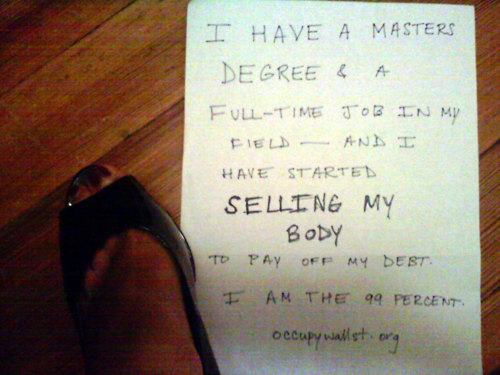 I HAVE A MASTERS
DEGREE & A
FULL-TIME JOB IN MY
FIELD — AND I
HAVE STARTED
SELLING MY
BODY
TO PAY OFF MY DEBT.
I AM THE 99 PERCENT.
occupywallst.org